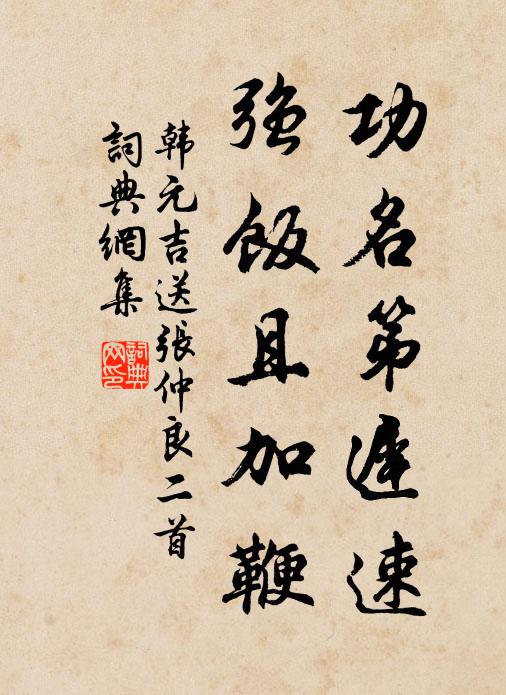 功名第遲速
強飯且加鞭
韩元吉送張仲良二首
詞典網集
詞典网印